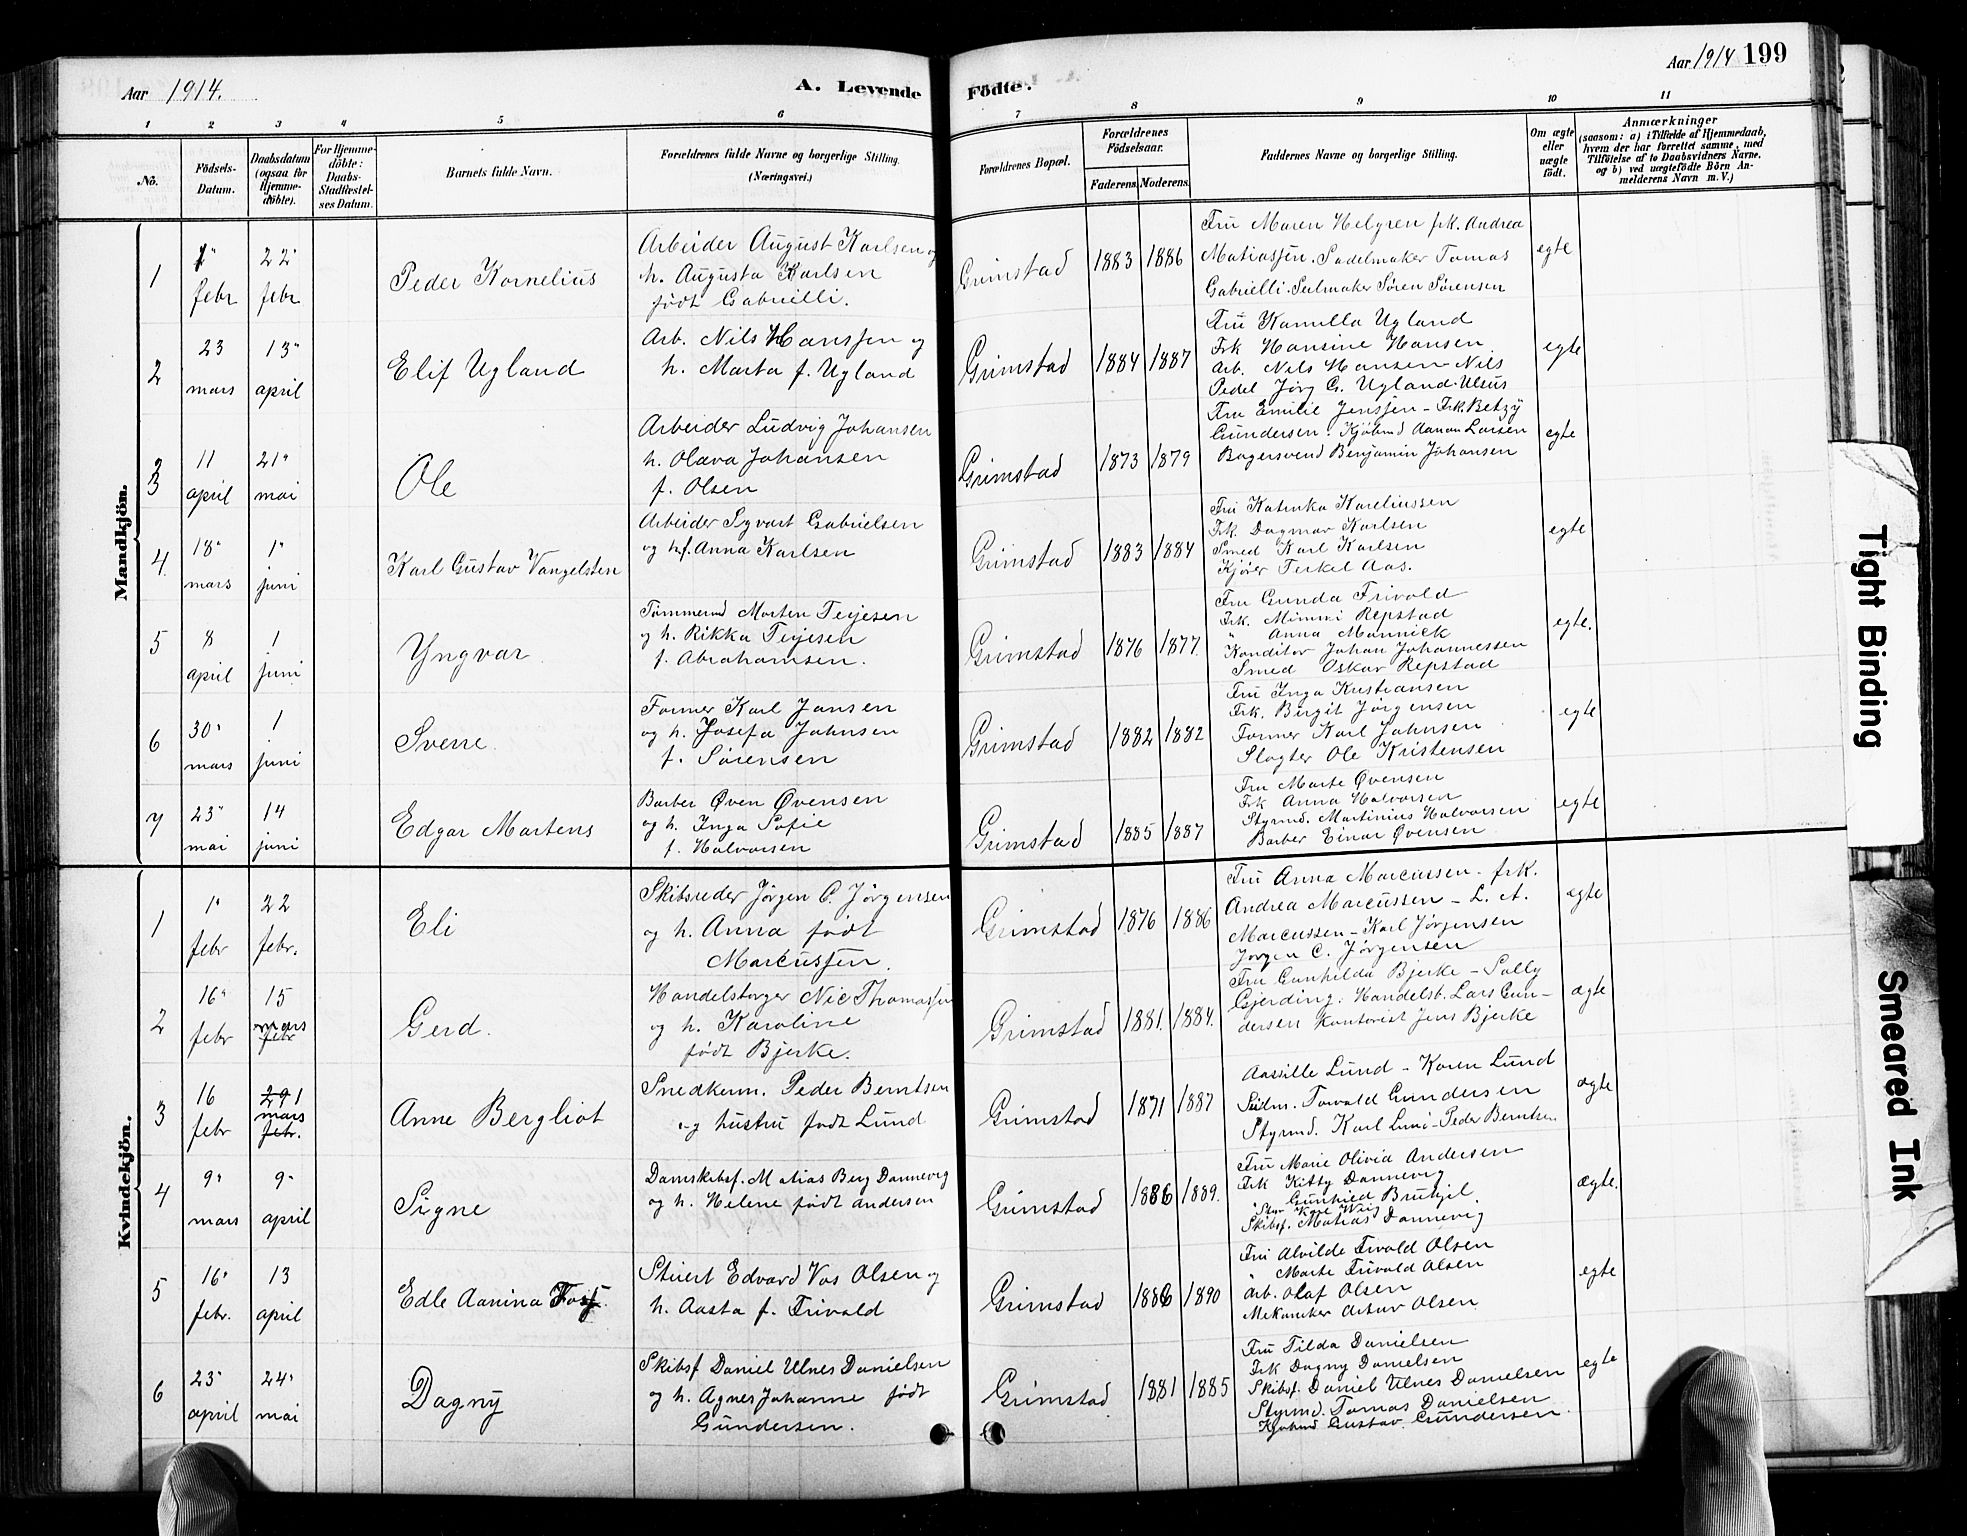 Aar 1914.
A. Levende
Födte.
Aar 1914 199
1 2 3 4 5 6 7 8 9 10 11
No.
Födsels-
Datum.
Daabsdatum
(ogsaa for
Hjemme-
döbte).
For Hjemme-
döbte:
Daabs-
Stadfæstel-
ses Datum.
Barnets fulde Navn.
Forældrenes fulde Navne og borgerlige Stilling.
(Næringsvei.)
Forældrenes Bopæl.
Forældrenes
Födselsaar.
Faderens.
Moderens.
Faddernes Navne og borgerlige Stilling.
Om ægte
eller
uægte
født.
Anmærkninger
(saasom: a) i Tilfælde af Hjemmedaab,
hvem der har forrettet samme, med
Tilföielse af to Daabsvidners Navne.
og b) ved uægtefödte Börn An-
melderens Navn m. V.)
Mandkjön.
1
1"
febr
22"
febr
Peder Kornelius
Arbeider August Karlsen og
h. Augusta Karlsen
født Gabrielli.
Grimstad
1883
1886
Fru Maren Helgren frk. Andrea
Matiassen. Sadelmaker Tomas
Gabrielli. Seilmaker Søren Sørensen
egte
2
23
mars
13"
april
Elif Ugland
Arb. Nils Hanssen og
h. Marta f. Ugland
Grimstad
1884
1887
Fru Kamilla Ugland
Frk Hansine Hansen
Arb. Nils Hansen - Nils
Pedel Jørg G. Ugland
egte
3
11
april
21"
mai
Ole
Arbeider Ludvig Johansen
h. Olava Johansen
f. Olsen
Grimstad
1873
1879
Fru Emilie Jenssen - Frk. Betzy
Gundersen. Kjøbmd Aanon Larsen
Bagersvend Benjamin Johansen
egte
4.
18"
mars
1"
juni
Karl Gustav Vangelsten
Arbeider Sigvart Gabrielsen
og h.f. Anna Karlsen
Grimstad
1883
1884
Fru Katinka Kareliussen
Frk. Dagmar Karlsen
Smed Karl Karlsen
Kjører Terkel Aas.
egte
5
8
april
1
juni
Yngvar
Tømmermd Morten Terjesen
og h. Rikka Terjesen
f. Abrahamsen.
Grimstad
1876
1877
Fru Gunda Frivold
Frk. Mimmi Repstad
" Anna Mannick
Konditor Johan Johannessen
Smed Oskar Repstad
egte.
6
30"
mars
1
juni
Sverre.
Former Karl Jansen
og h. Josefa Johnsen
f. Sørensen
Grimstad
1882
1882
Fru Inga Kristiansen
Frk. Birgit Jørgensen
Former Karl Johnsen
Slagter Ole Kristensen
egte
7
23"
mai
14
juni
Edgar Martens
Barber Øven Øvensen
og h. Inga Sofie
f. Halvorsen
Grimstad
1885
1887
Fru Marte Øvensen
Frk Anna Halvorsen
Styrmd. Martinius Halvorsen
Barber Einar Øvensen
egte
Kvindekjön.
1
1"
febr
22
febr.
Eli
Skibsreder Jørgen C. Jørgensen
og h. Anna født
Marcussen.
Grimstad
1876
1886
Fru Anna Marcussen - frk.
Andrea Marcussen - L. A.
Marcussen - Karl Jørgensen
Jørgen C. Jørgensen
ægte
2
16"
febr
15
mars
febr
Gerd.
Handelsborger Nic Thomassen
og h. Karoline
født Bjerke.
Grimstad
1881.
1884.
Fru Gunhilda Bjerke - Sally
Gjerding. Handelsb. Lars Gun-
dersen Kontorist Jens Bjerke
ægte
3
16
febr
29 1
mars
febr.
Anne Bergliot
Snedkerm. Peder Berntsen
og hustru født Lund
Grimstad
1871
1887
Aasille Lund - Karen Lund
Torvald Gundersen
Styrmd. Karl Lund - Peder Berntsen
ægte
4
9"
mars
9"
april
Signe
Damskibsf. Matias Berg Dannevig
og h. Helene født Andersen
Grimstad
1886
1889.
Fru Marie Olivia Andersen
Frk Kitty Dannevig
" Gunhild
Skibsf. Matias Dannevig
ægte.
5
16"
febr.
13
april
Edle Aanina Foss.
Stuert Edvard Vos Olsen og
h. Aasta f. Frivold
Grimstad
1886
1890
Fru Alvilde Frivold Olsen
" Marte Frivold Olsen
Arb. Olaf Olsen
Mekaniker Artur Olsen
egte
6
23"
april
24"
mai
Dagny
Skibsf Daniel Ulnes Danielsen
og h. Agnes Johanne født
Gundersen.
Grimstad
1881
1885
Fru Tilda Danielsen
Frk Dagny Danielsen
Skibsf. Daniel Ulnes Danielsen
Styrmd. Tomas Danielsen
Kjøbmd Gustav Gundersen
egte
Tight Binding
Smeared Ink